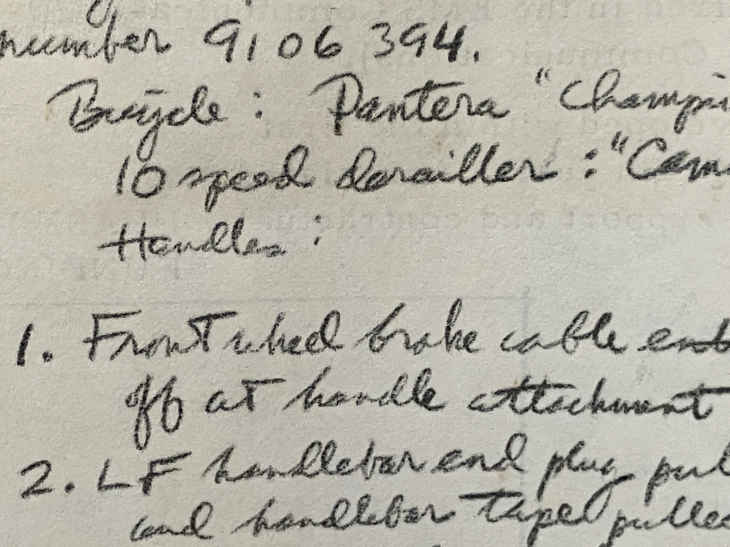 number 9106394.
Bicycle: Pantera "Champi
10 speed derailler: "Cam
Handles:
1. Front wheel brake cable
off at handle attachment
2. LF handlebar end plug pul
and handlebar tape pulled